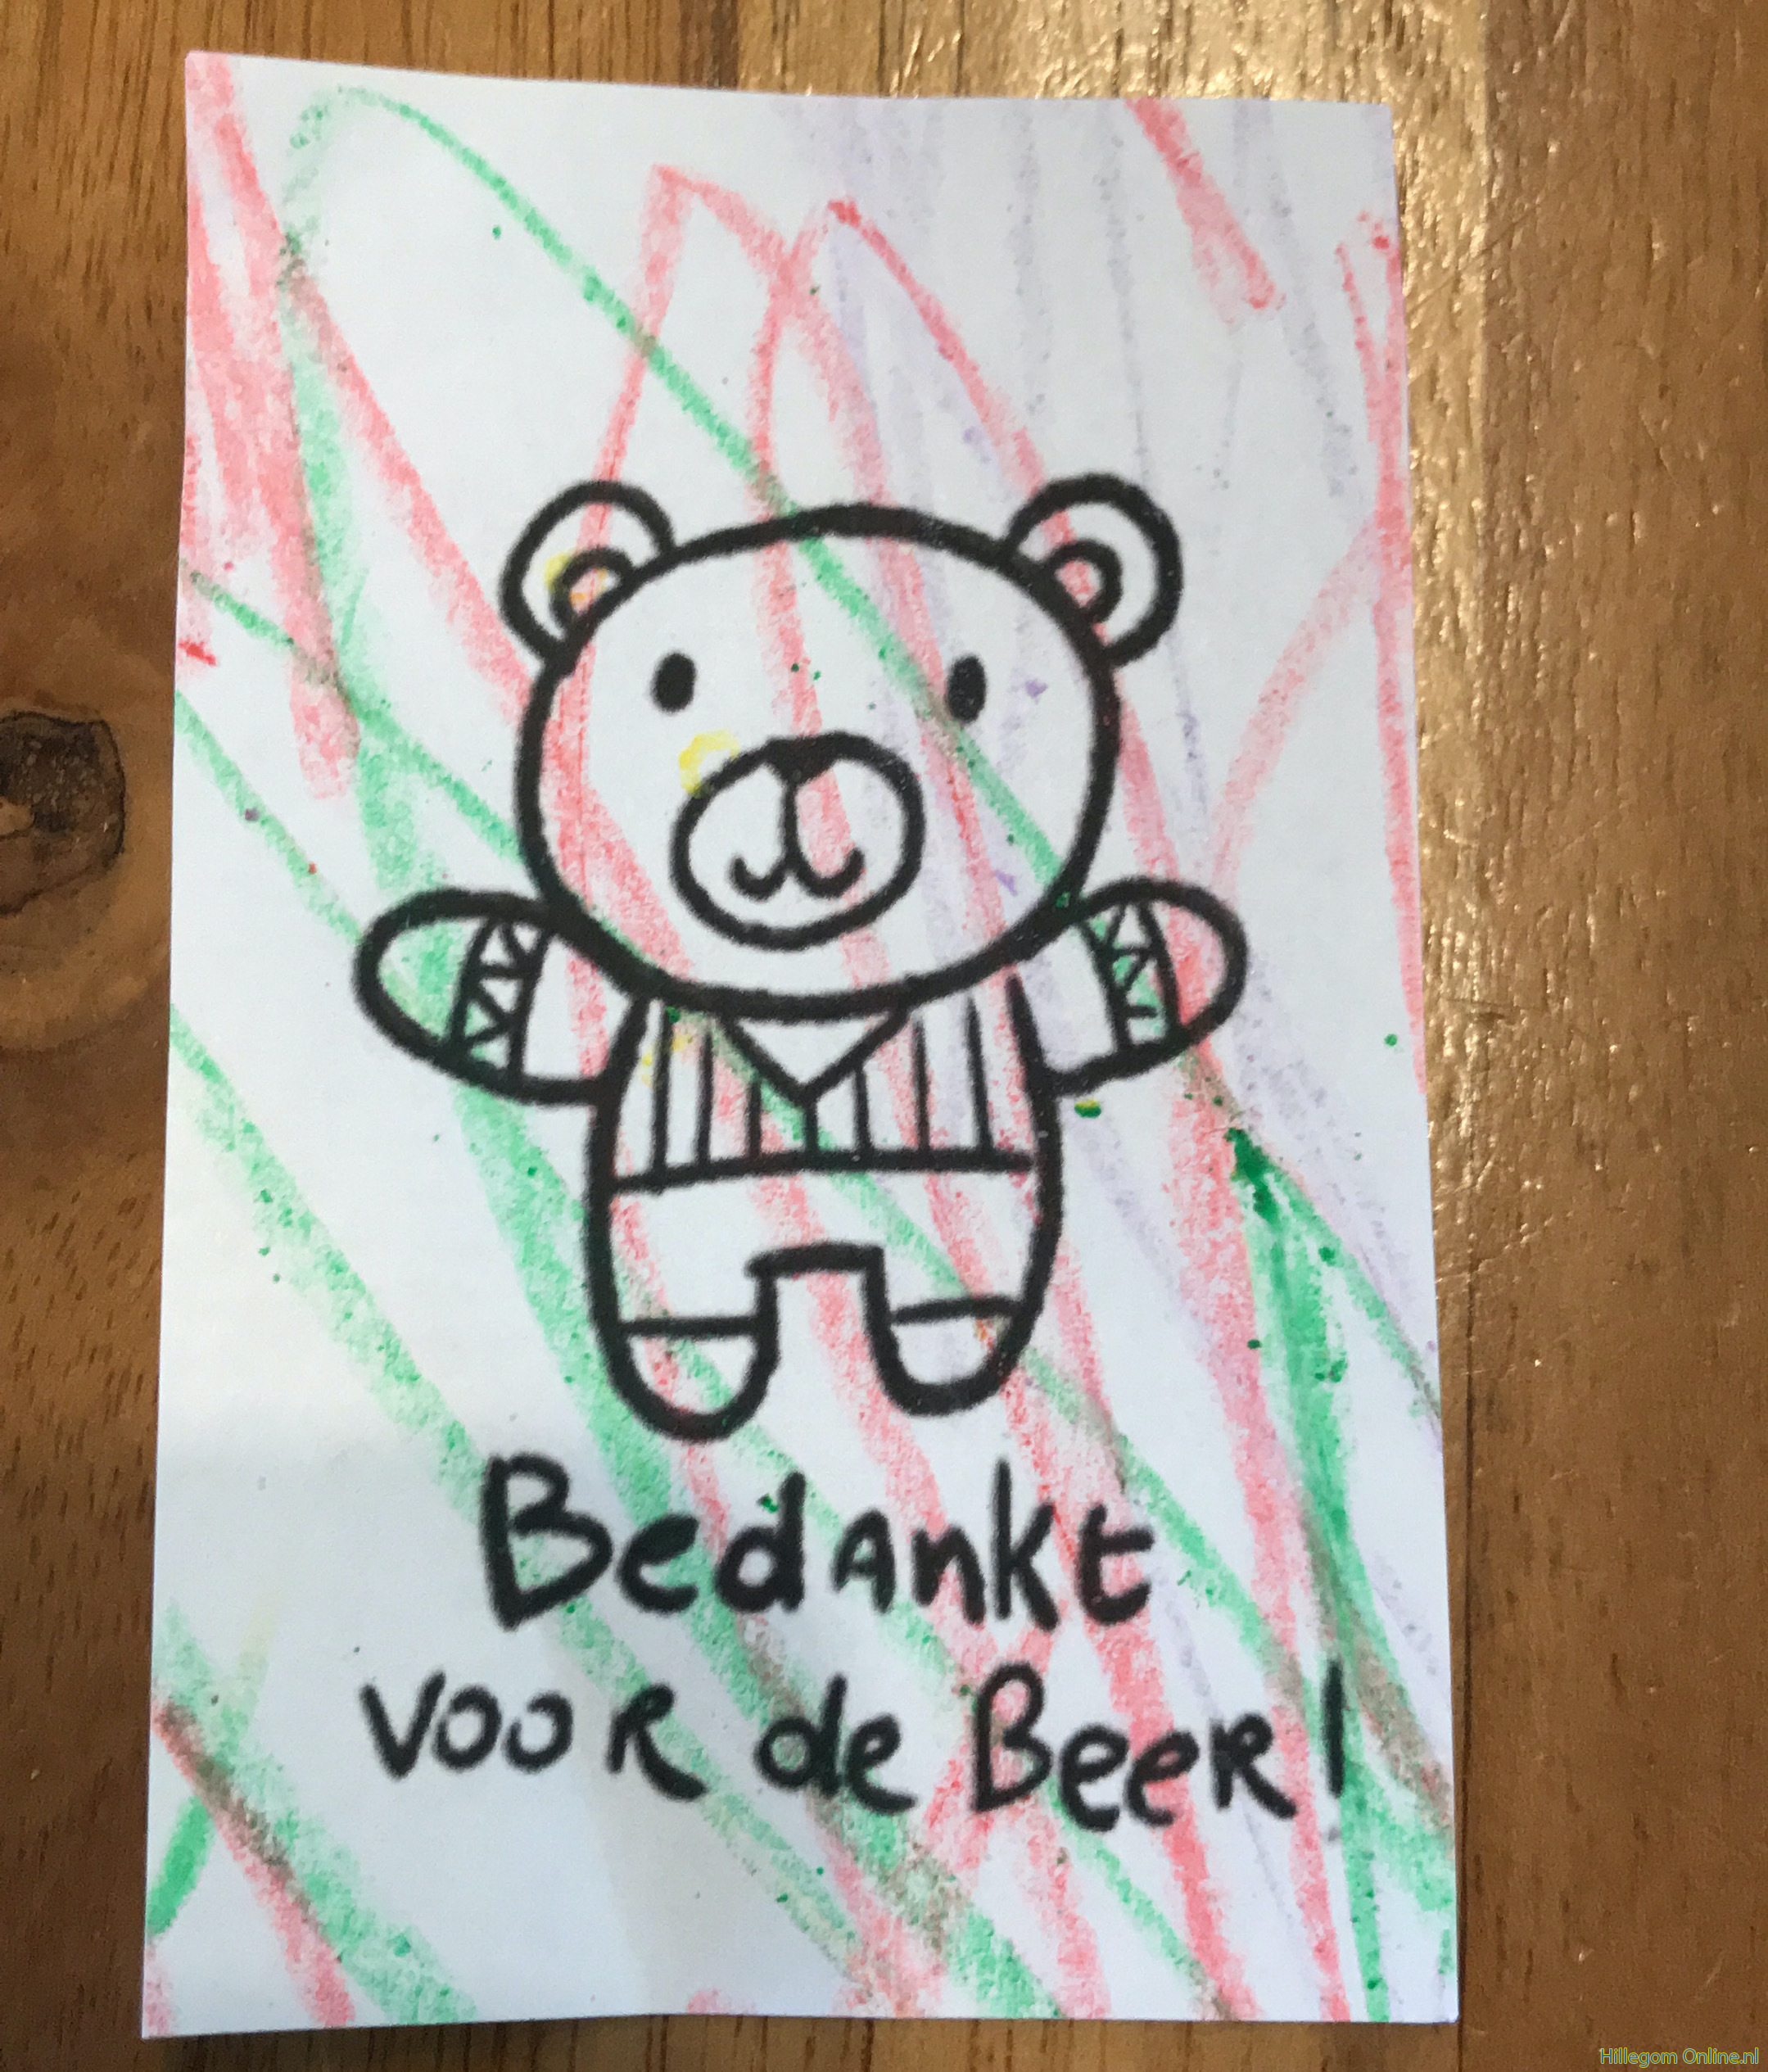 Bedankt
voor de Beer!
Hillegom Online.nl